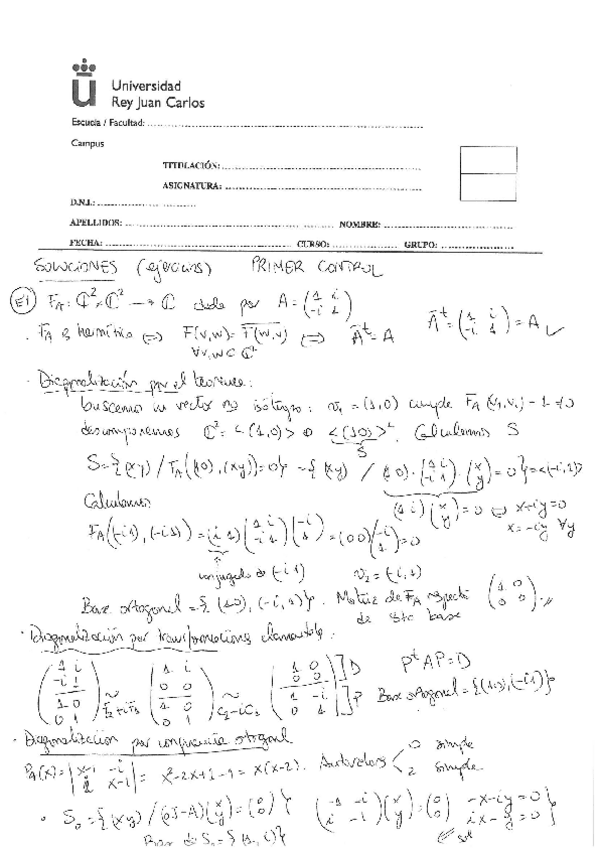 Universidad
Rey Juan Carlos
Escuela / Facultad: ...
Campus
TITULACIÓN: ...
ASIGNATURA: ...
D.N.I.: ...
APELLIDOS: ... NOMBRE: ...
FECHA: ... CURSO: ... GRUPO: ...
SOLUCIONES (ejercicios) PRIMER CONTROL
E1 F_A: ℂ² × ℂ² → ℂ dada por A = (1 i; -i 1)
· F_A es hermítica ⟺ F(v,w) = \overline{F(w,v)} ⟺ Ā^t = A Ā^t = (1 i; -i 1) = A ✓
∀v,w ∈ ℂ²
· Diagonalización por el teorema:
buscamos un vector no isótropo: v₁ = (1,0) cumple F_A(v₁,v₁) = 1 ≠ 0
descomponemos ℂ² = <(1,0)> ⊕ <(1,0)>^⊥. Calculamos S
S
S = {(x y) / F_A((1,0),(x,y)) = 0} = {(x y) / (1 0)·(1 i; -i 1)·(x; y) = 0} = <(-i,1)>
Calculamos (1 i)(x; y) = 0 ⟺ x+iy=0
x = -iy ∀y
F_A((-i 1),(-i 1)) = (i 1)(1 i; -i 1)(-i; 1) = (0 0)(-i; 1) = 0
conjugado de (-i 1) v₂ = (-i,1)
Base ortogonal = {(1 0), (-i,1)}. Matriz de F_A respecto (1 0; 0 0)
de esta base
· Diagonalización por transformaciones elementales:
(1 i; -i 1; 1 0; 0 1) ~ F₂+iF₁ (1 i; 0 0; 1 0; 0 1) ~ C₂-iC₁ (1 0; 0 0; 1 -i; 0 1) ]D ]P P^tAP = D
Base ortogonal = {(1 0),(-i 1)}
· Diagonalización por congruencia ortogonal
P_A(x) = |x-1 -i; i x-1| = x²-2x+1-1 = x(x-2). Autovalores 0 simple
2 simple
· S₀ = {(x y) / (0I-A)(x; y) = (0; 0)} (-1 -i; i -1)(x; y) = (0; 0) -x-iy=0
ix-y=0
Base de S₀ = {(1, i)}